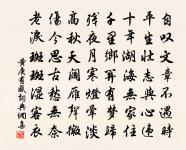 自以文章不遇時
平生壯志與心違
十年湖海無家
千里鄉有夢歸
殘夜月寒燈暈淡
高秋天闊雁聲微
傷今思古愁無奈
老淚斑斑濕客衣
黃庚書感詞典網集